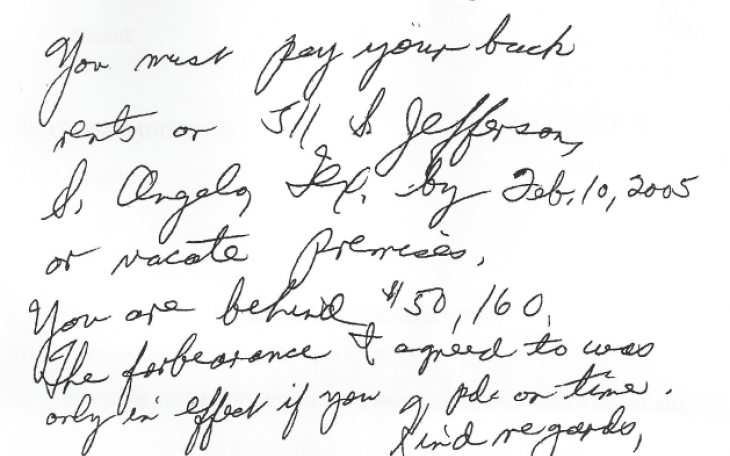 You must pay your back
rents or 511 S. Jefferson,
S. Angelo, Tex. by Feb. 10, 2005
or vacate premises.
You are behind $50,160.
The forbearance I agreed to was
only in effect if you pd. on time.
Kind regards,